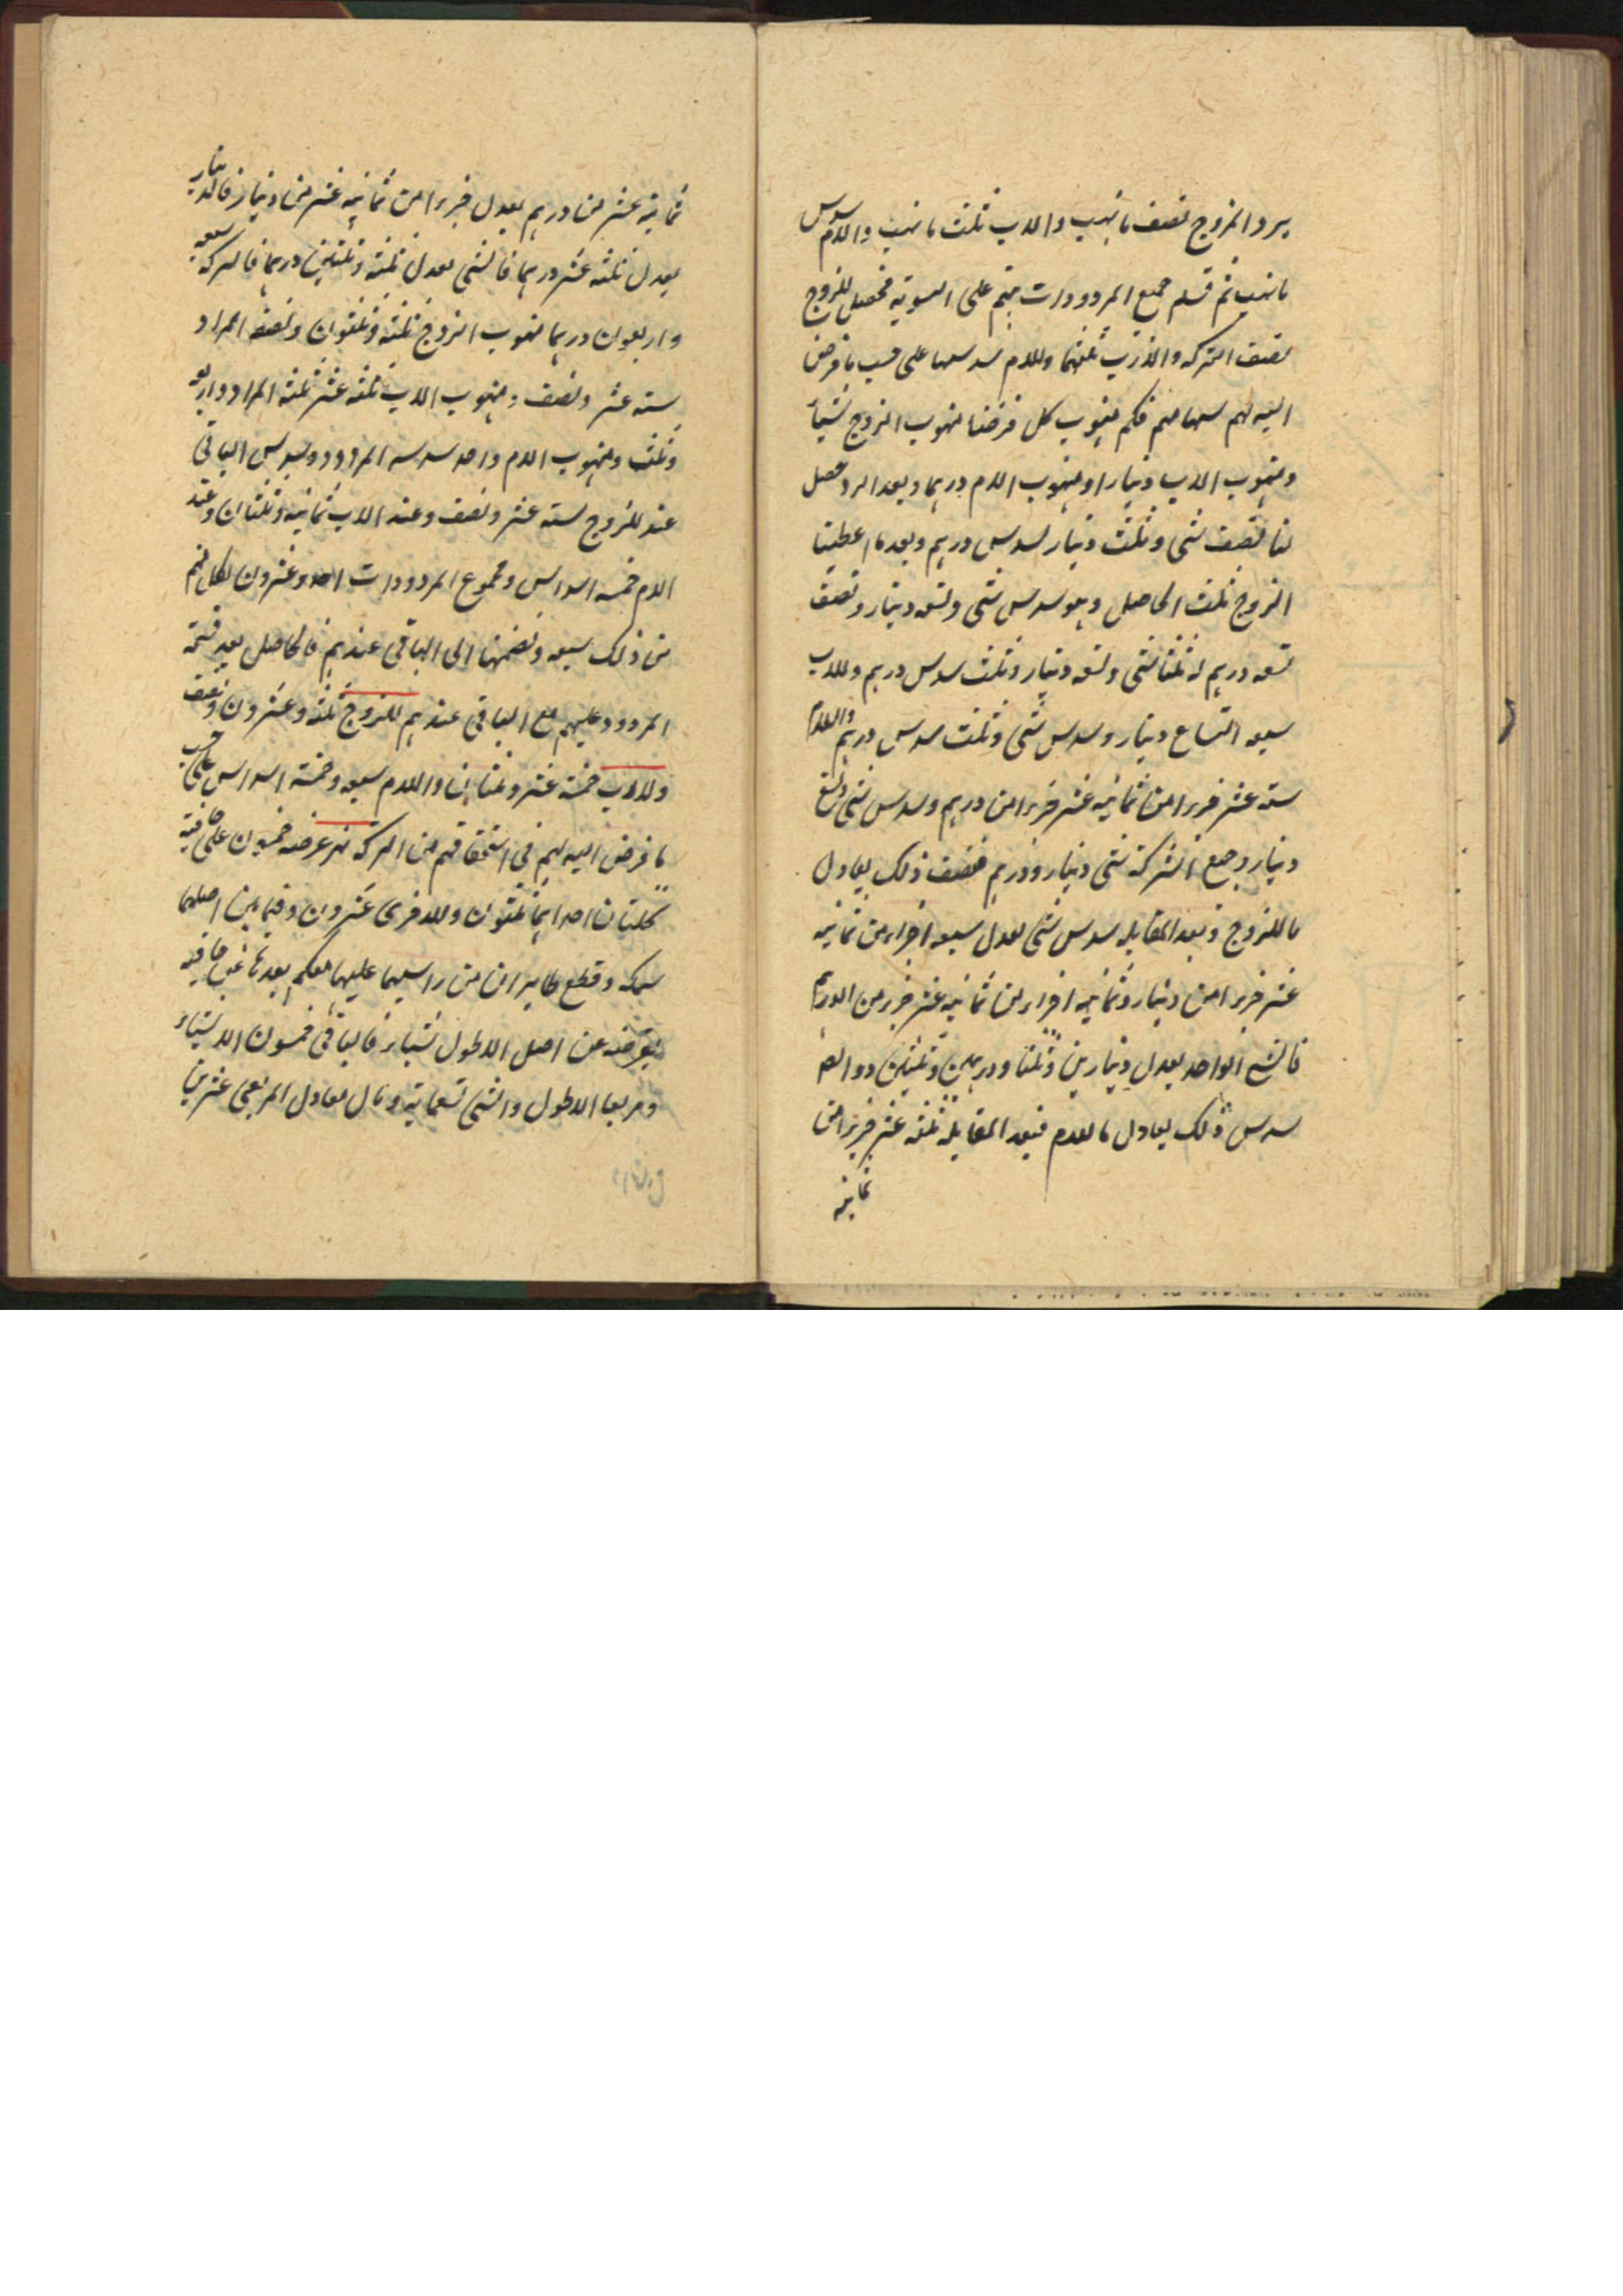 يرد الزوج نصف ما نهب والاب ثلث ما نهب والام سدس
ما نهب ثم قسم جميع المردودات بينهم على السوية فحصل للزوج
نصف التركه والاب ثلثها وللام سدسها على حسب ما فرض
الله لهم سهامهم فكم منهوب كل فرضنا منهوب الزوج شيئا
ومنهوب الاب دينارا ومنهوب الام درهما وبعد الرد حصل
لنا نصف شى وثلث دينار وسدس درهم وبعد ما اعطينا
الزوج ثلث الحاصل وهو سدس شى وتسع دينار ونصف
تسع درهم له ثلثا شى وتسع دينار وثلث سدس درهم وللاب
سبعه اتساع دينار وسدس شى وثلث سدس درهم وللام
سته عشر جزءا من ثمانيه عشر جزءا من درهم وسدس شى وتسع
دينار وجميع التركة شى ودينار ودرهم فنصف ذلك يعادل
ما للزوج وبعد المقابله سدس شى يعدل سبعه اجزاء من ثمانيه
عشر جزءا من دينار وثمانيه اجزاء من ثمانيه عشر جزء من الدرهم
فالشى الواحد يعدل دينارين وثلثا ودرهمين وثلثين
سدس ذلك يعادل ما للام فبعد المقابلة ثلثه عشر جزءا من
ثمانيه
ثمانية عشر من درهم يعدل جزءا من ثمانيه عشر من دينار فالدينار
يعدل ثلثه عشر درهما فالشى يعدل ثلثه وثلثين درهما فالتركه سبعه
واربعون درهما منهوب الزوج ثلثه وثلثون ونصفه المراد
سته عشر ونصف ومنهوب الاب ثلثه عشر ثلثه المراد واربعه
وثلث ومنهوب الام واحد سدسه المردود وسدس الباقى
عند الزوج سته عشر ونصف وعند الاب ثمانيه وثلثان وعند
الام خمسه اسداس ومجموع المردودات احد وعشرون لكل منهم
من ذلك سبعه ونضمها الى الباقى عندهم فالحاصل بعد قسمة
المردود عليهم مع الباقى عندهم للزوج ثلثه وعشرون ونصف
وللاب خمسة عشر وثلثان وللام سبعه وخمسة اسداس على حسب
ما فرض الله لهم فى استحقاقهم من التركه نهر عرضه خمسون على حافتيه
نخلتان احدايهما ثلثون وللاخرى عشرون وفيما بين اصلهما
سمكه وقطع طايران من راسيهما عليهما فكم بعدها عن حافتيه
نفرضه عن اصل الاطول شيئا فالباقى خمسون الا شيئا
ومربعا الاطول والشى تسعمايه ومال معادل لمربعى عشرين